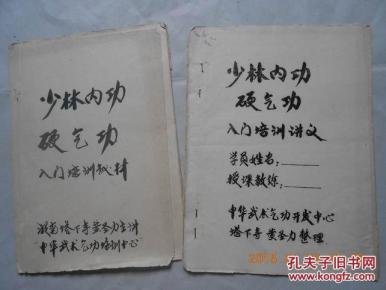 少林内功
硬气功
入门培训秘料
塔下寺黄谷力主讲
中华武术气功培训中心
少林内功
硬气功
入门培训讲义
学员姓名：
授课教练：
中华武术气功开发中心
塔下寺 黄谷力 整理
孔夫子旧书网